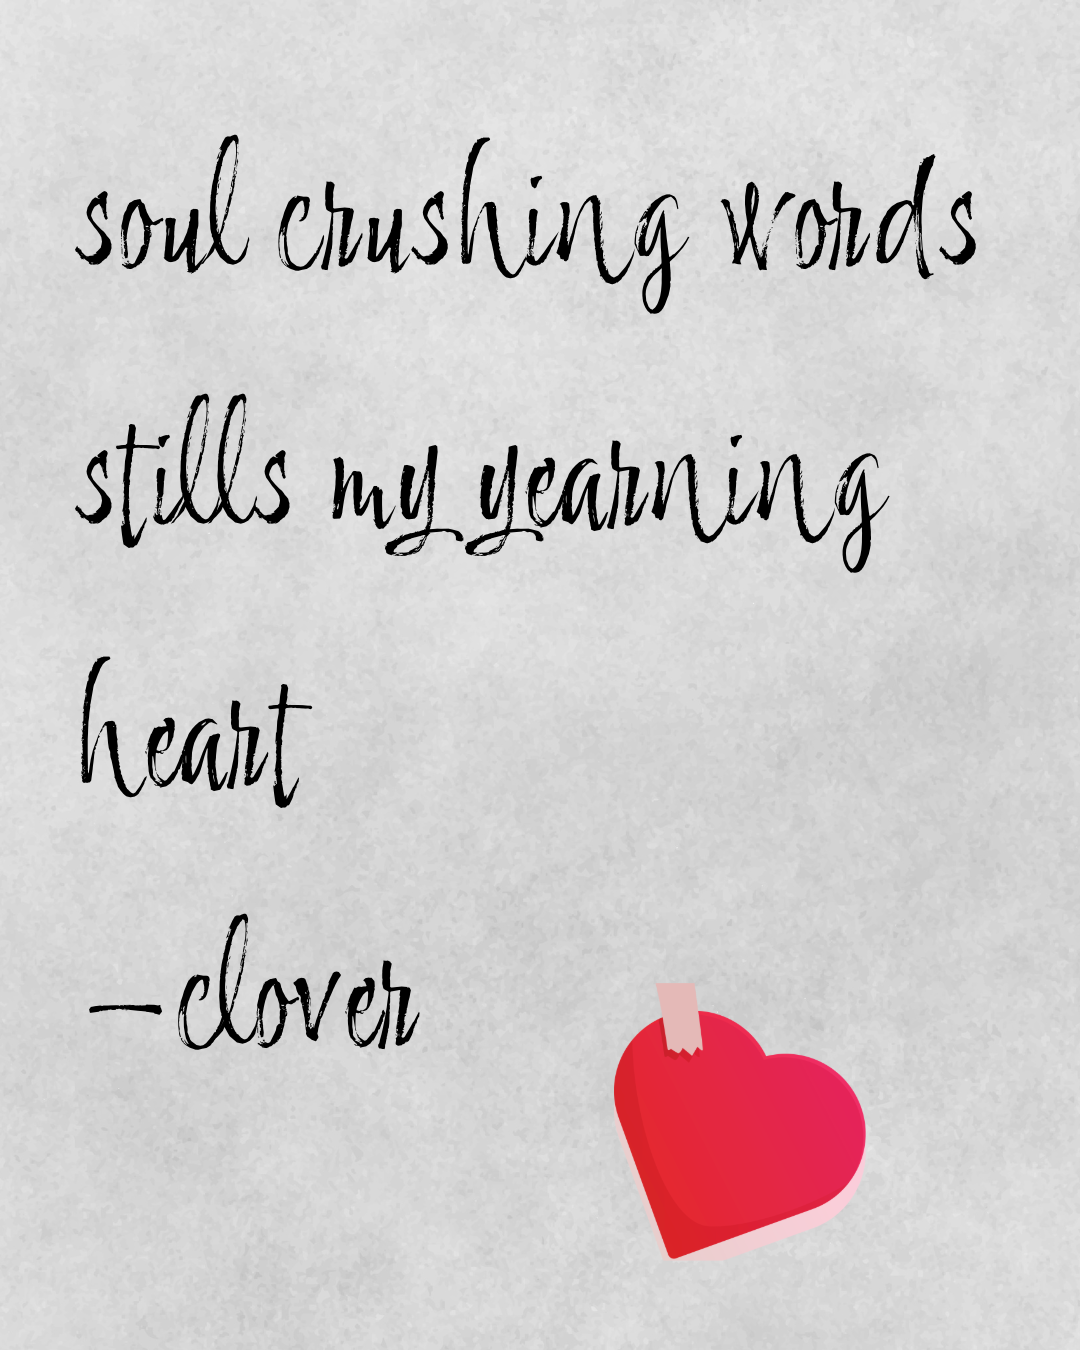 soul crushing words
stills my yearning
heart
-clover